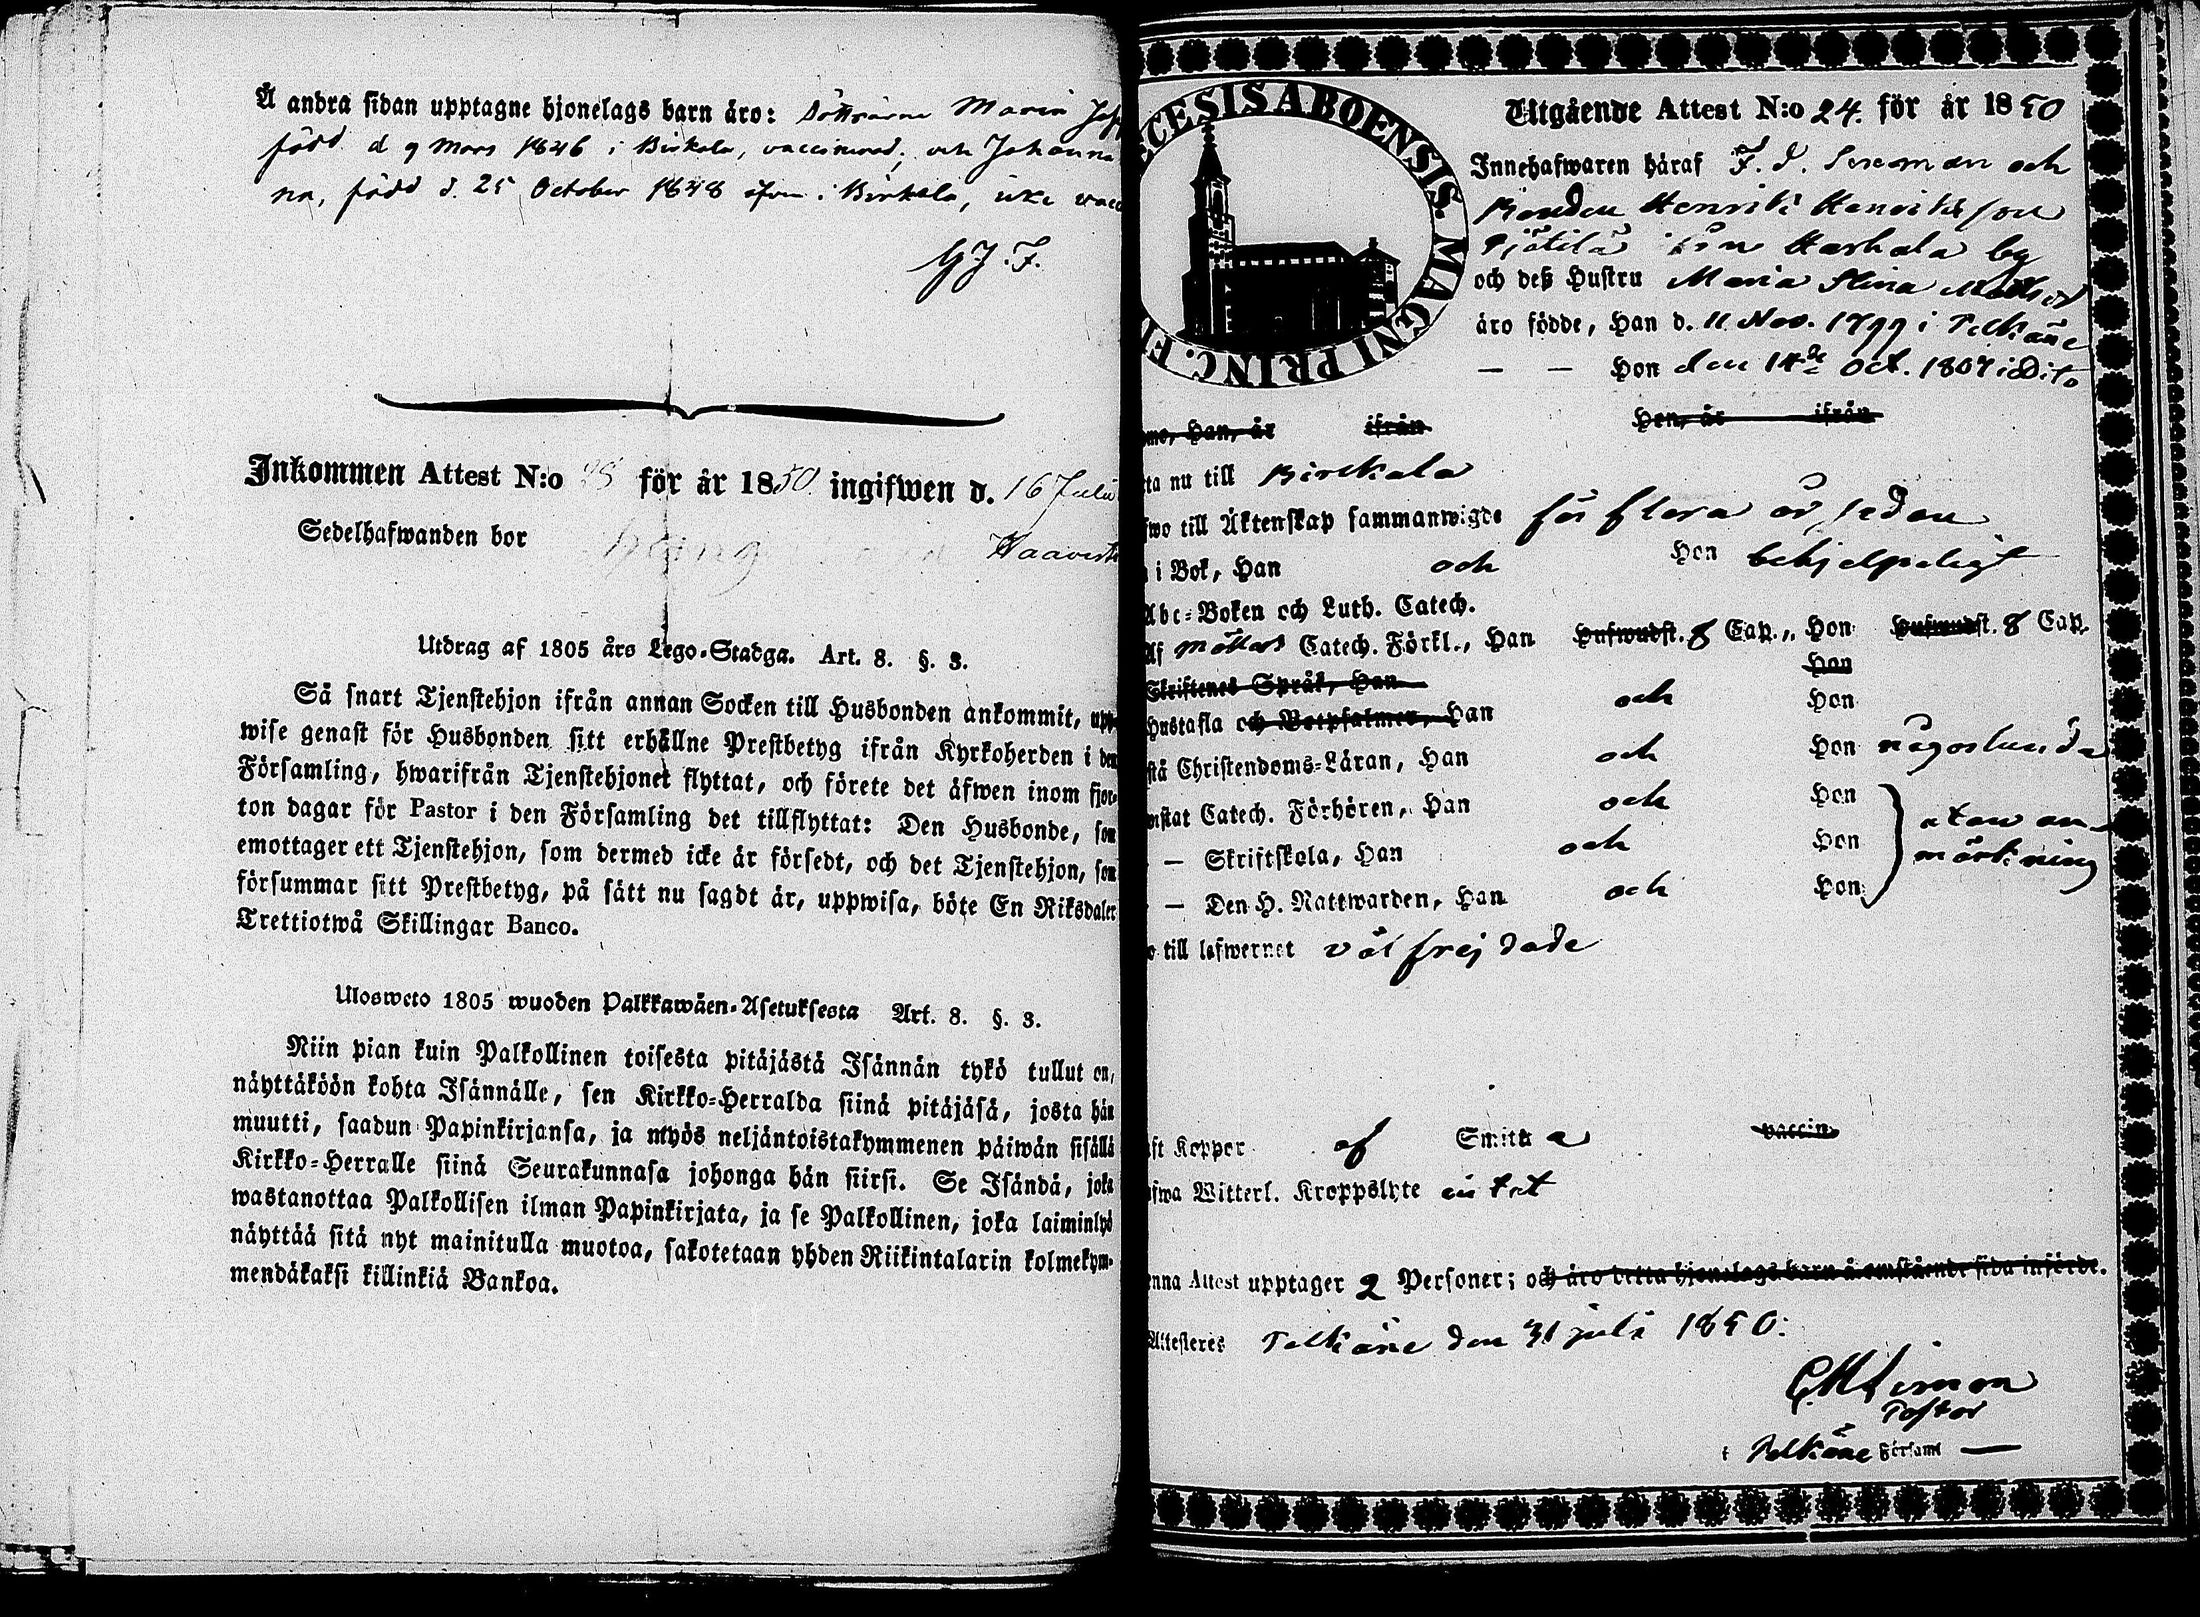 Å andra sidan upptagne hjonelags barn äro: Döttrarne Maria
född d 9 Mars 1846 i Birkala, vaccinerad, och Johanna
na, född d. 25 October 1848 i Birkala, icke vacc
G J. F.
Inkommen Attest N:o 98 för år 1850. ingifwen d. 16 Julii
Sedelhafwanden bor Haavisto
Utdrag af 1805 års Lego-Stadga. Art. 8. §. 3.
Så snart Tjenstehjon ifrån annan Socken till Husbonden ankommit, upp-
wise genast för Husbonden sitt erhållne Prestbetyg ifrån Kyrkoherden i den
Församling, hwarifrån Tjenstehjonet flyttat, och förete det äfwen inom fjor-
ton dagar för Pastor i den Församling det tillflyttat: Den Husbonde, som
emottager ett Tjenstehjon, som dermed icke är försedt, och det Tjenstehjon, som
försummar sitt Prestbetyg, på sätt nu sagdt är, uppwisa, böte En Riksdaler
Trettiotwå Skillingar Banco.
Uloswéto 1805 wuoden Palkkawäen-Asetuksesta Art. 8. §. 3.
Niin pian kuin Palkollinen toisesta pitäjästä Isännän tykö tullut on,
näyttäköön kohta Isännälle, sen Kirkko-Herralda siinä pitäjäsä, josta hän
muutti, saadun Papinkirjansa, ja myös neljäntoistakymmenen päiwän sisällä
Kirkko-Herralle siinä Seurakunnasa johonga hän siirsi. Se Isändä, joka
wastanottaa Palkollisen ilman Papinkirjata, ja se Palkollinen, joka laiminlyö
näyttää sitä nyt mainitulla muotoa, sakotetaan yhden Riikintalarin kolmekym-
mendäkaksi killinkiä Bankoa.
ECESIS ABOENSIS. MAGNI PRINC. FI
Utgående Attest N:o 24. för år 1850
Innehafwaren häraf F. d. och
Bonden Henrik Henriksson
från by
och deß Hustru Maria Stina
äro födde, Han d. 11 Nov. 1799 i Pelkäne
— — Hon den 14de Oct. 1807 i Dito
mo, Han, år ifrån Hon, år ifrån
ta nu till Birckala
fwo till Äktenskap sammanwigde för flera år sedan
i Bok, Han och Hon behjelpeligt
Abc-Boken och Luth. Catech.
Af Möllers Catech. Förkl., Han hufwudst. 8 Cap., Hon hufwudst. 8 Cap.
Skriftenes Språk, Han Hon
Hustafla och Botpsalmer, Han och Hon
stå Christendoms-Läran, Han och Hon någorlunda
mstat Catech. Förhören, Han och Hon
— Skriftskola, Han och Hon utan an-
märkning
— Den H. Nattwarden, Han och Hon
o till lefwernet väl frejdade
ft Koppor af Smitta vaccin
fwa Witterl. Kroppslyte intet
nna Attest upptager 2 Personer; och äro detta hjonelags barn å omstående sida införde.
Attesteres Pelkäne den 31 juli 1850.
Pastor
i Pelkäne Församl —